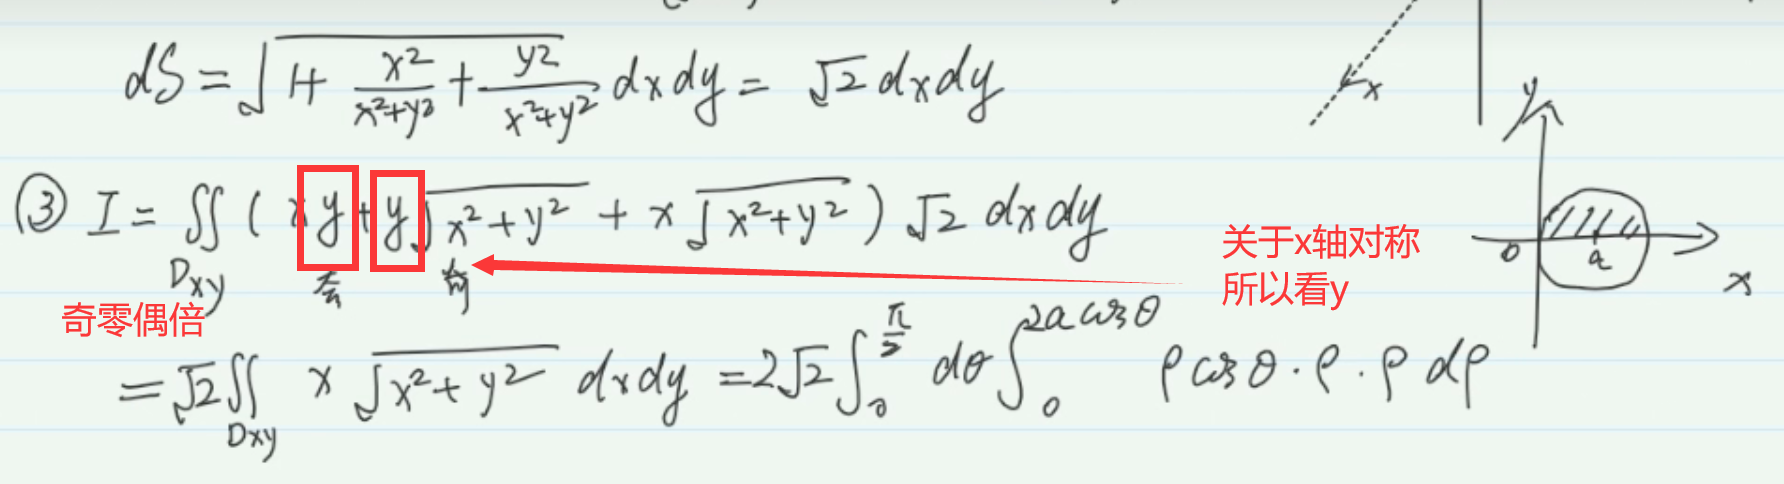 dS = √(1+ x²/(x²+y²) + y²/(x²+y²)) dxdy = √2 dxdy
x
y
③ I = ∬_{Dxy} ( xy + y√(x²+y²) + x√(x²+y²) ) √2 dxdy
奇 奇
关于x轴对称
所以看y
0 a x
奇零偶倍
= √2 ∬_{Dxy} x √(x²+y²) dxdy = 2√2 ∫_0^{π/2} dθ ∫_0^{2a cosθ} ρ cosθ · ρ · ρ dρ